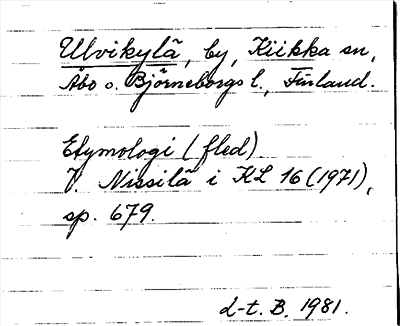 Ulvikylä, by, Kiikka sn,
Åbo o. Björneborgs l., Finland.
Etymologi (fled)
V. Nissilä i KL 16 (1971),
sp. 679.
d-t. B. 1981.